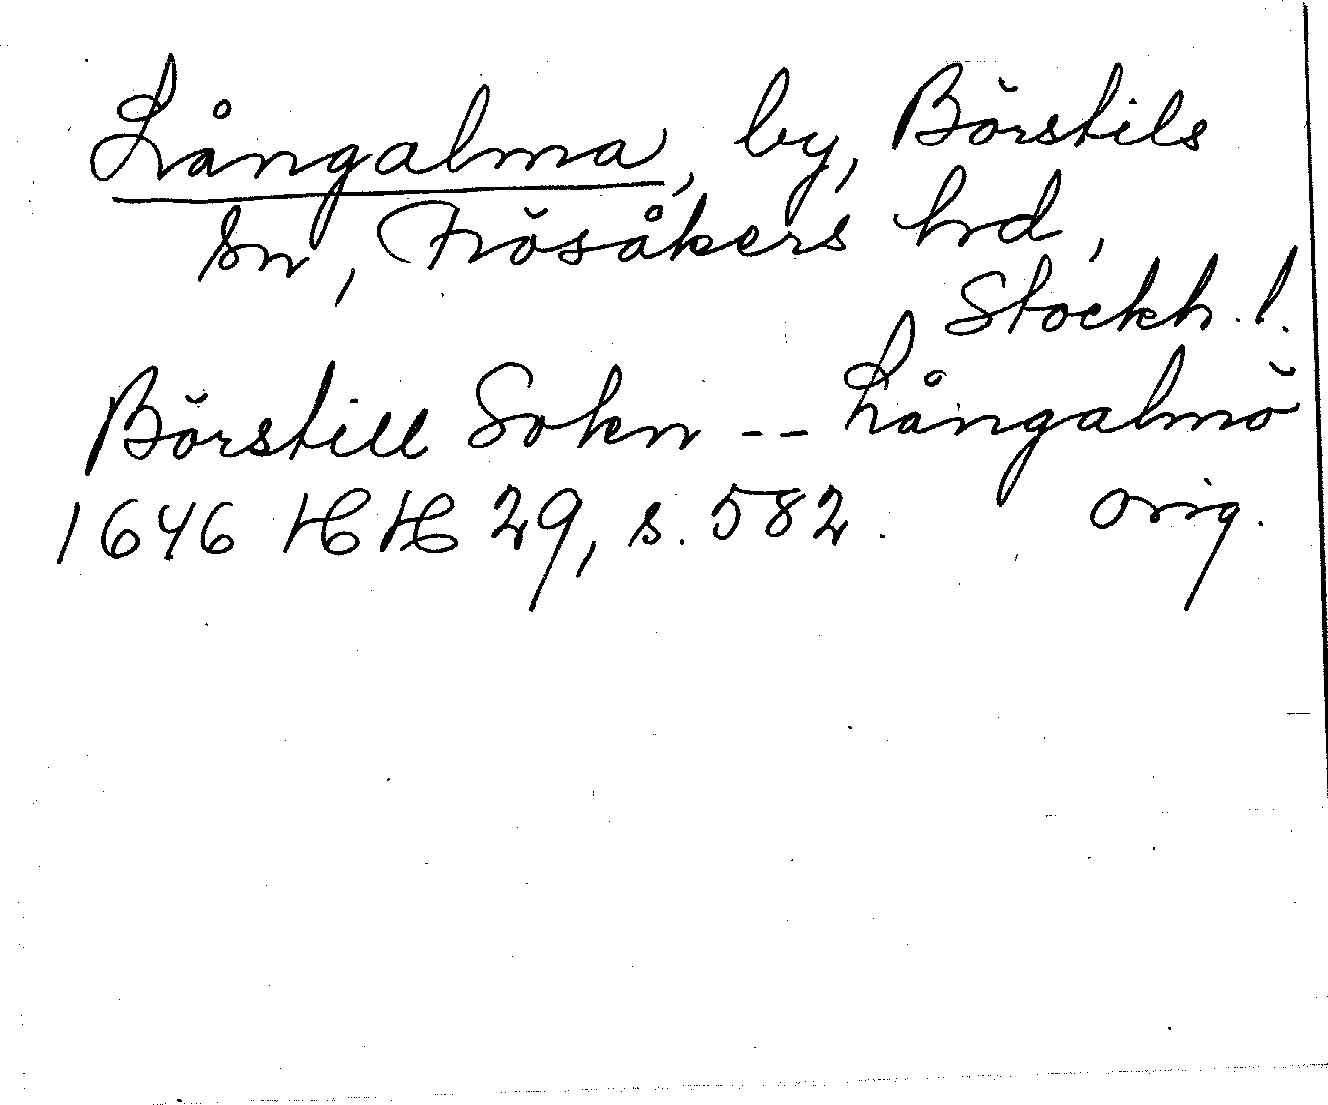 Långalma, by, Börstils
sn, Frösåkers hd,
Stockh. l.
Börstill Sokn -- Långalmö
1646 HH 29, s. 582. orig.